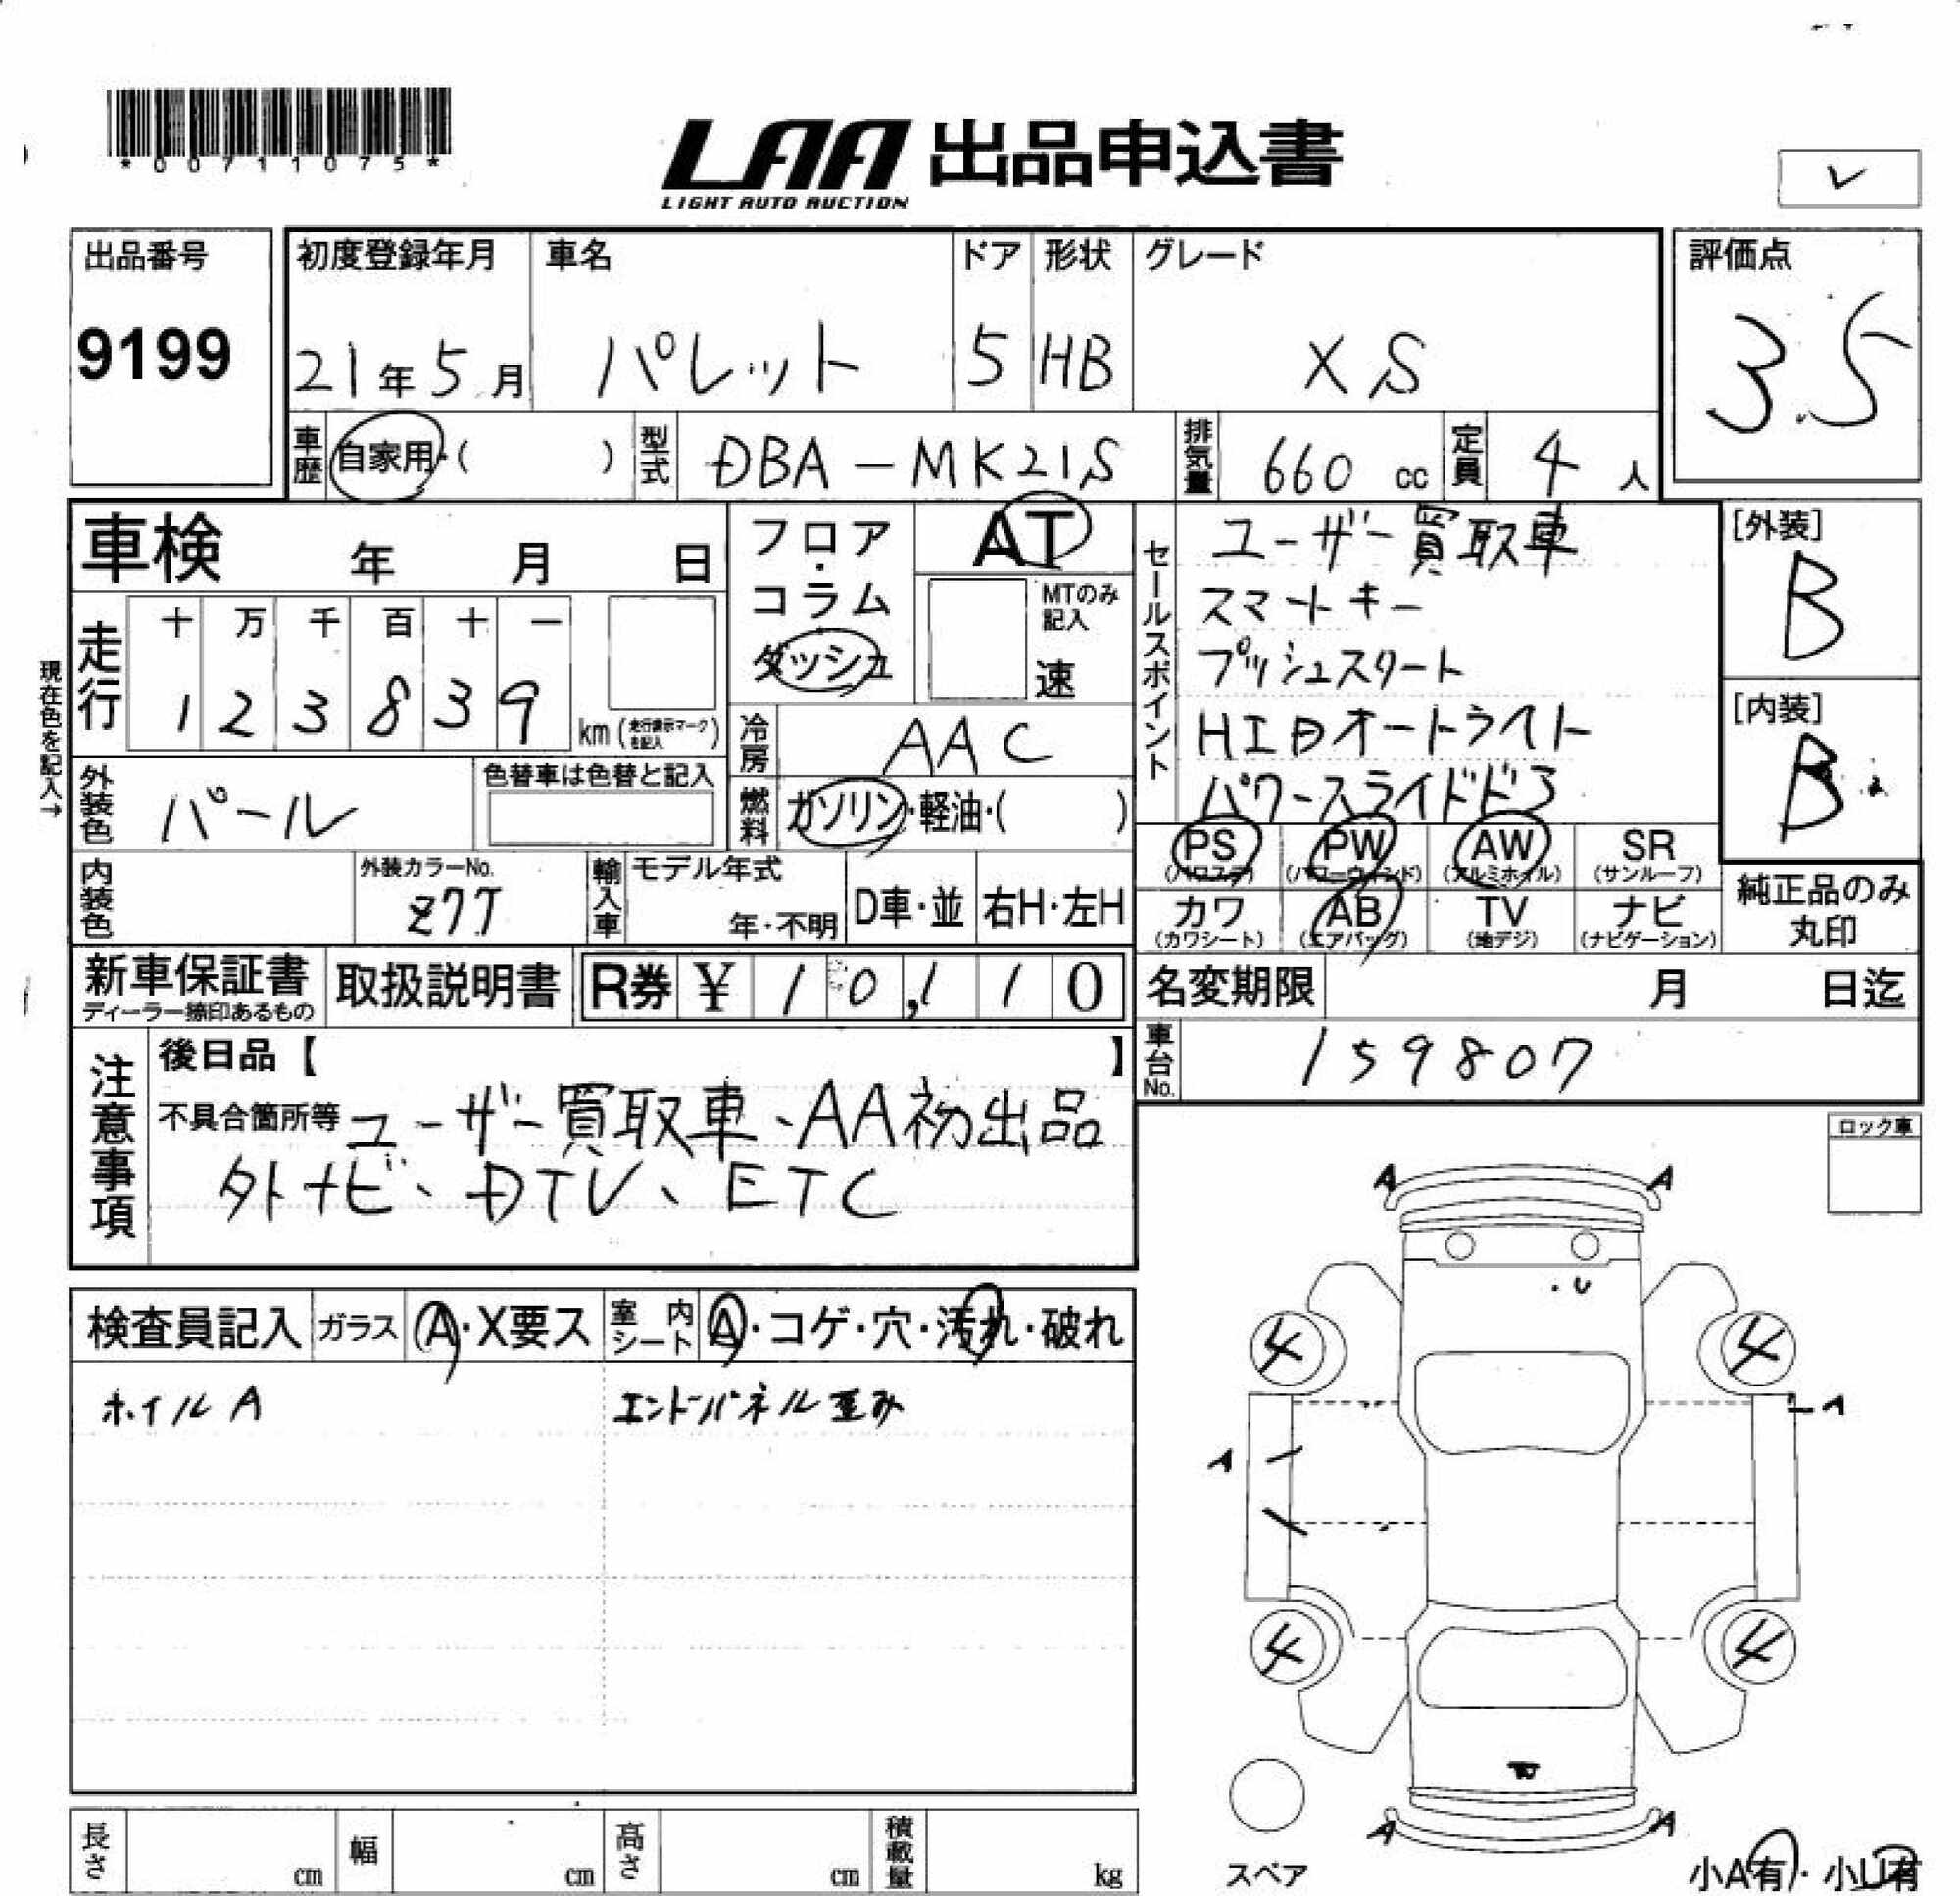 *00711075*
LAA 出品申込書
LIGHT AUTO AUCTION
出品番号
9199
初度登録年月 車名 ドア 形状 グレード
21年5月 パレット 5 HB XS
評価点
3.5
車歴 自家用・( ) 型式 DBA-MK21S 排気量 660 cc 定員 4 人
車検 年 月 日
フロア・コラム・ダッシュ
AT
MTのみ記入
速
走行 十 万 千 百 十 一
1 2 3 8 3 9 km (走行表示マークを記入)
現在色を記入→
外装色 パール
色替車は色替と記入
冷房 AAC
燃料 ガソリン・軽油・( )
内装色
外装カラーNo.
Z7T
輸入車 モデル年式
年・不明 D車・並 右H・左H
セールスポイント
ユーザー買取車
スマートキー
プッシュスタート
HIDオートライト
パワースライドドア
[外装]
B
[内装]
B
PS PW AW SR
(パワステ) (パワーウィンド) (アルミホイル) (サンルーフ)
カワ AB TV ナビ
(カワシート) (エアバッグ) (地デジ) (ナビゲーション)
純正品のみ
丸印
新車保証書
ディーラー捺印あるもの
取扱説明書
R券 ¥ 10,110
名変期限 月 日迄
車台No. 159807
注意事項
後日品【 】
不具合箇所等 ユーザー買取車、AA初出品
外ナビ、DTV、ETC
ロック車
検査員記入 ガラス A・X要ス 室内シート A・コゲ・穴・汚れ・破れ
ホイルA エンドパネル歪み
A A
U
4 4
A
A
4 4
A A
スペア
小A有・小U有
長さ cm 幅 cm 高さ cm 積載量 kg